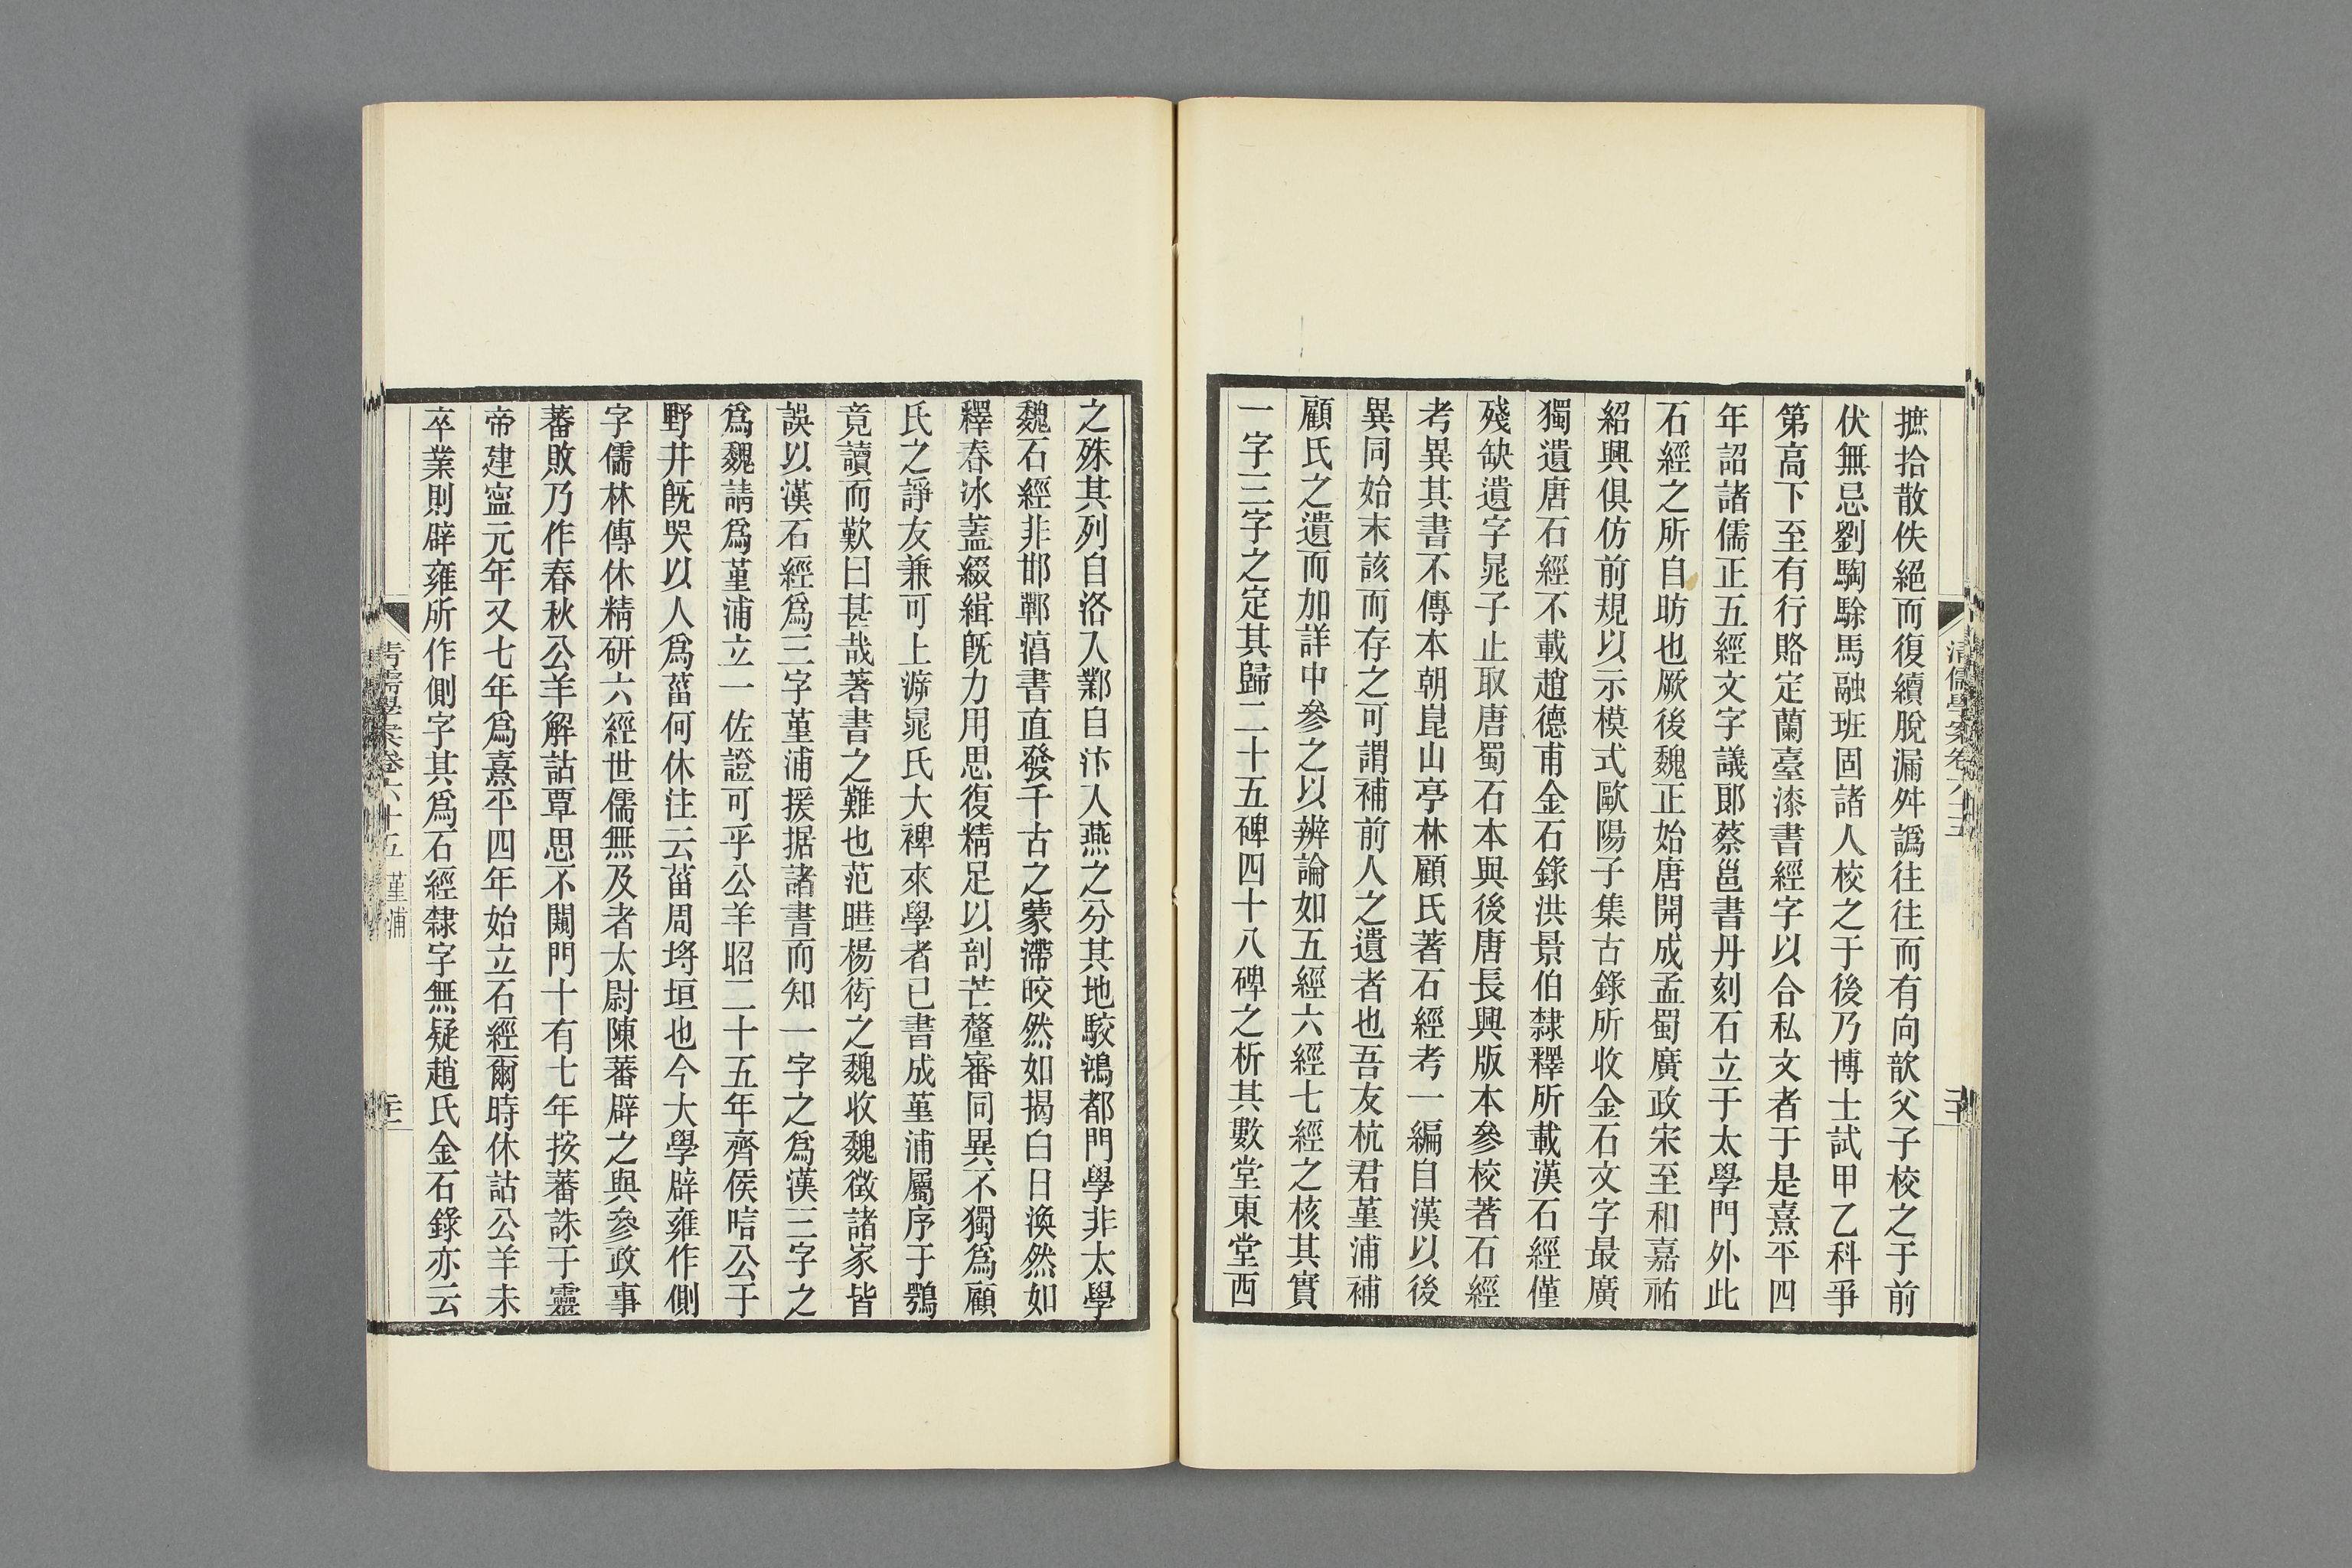 摭拾散佚絕而復續脫漏舛譌往往而有向歆父子校之于前
伏無忌劉騊駼馬融班固諸人校之于後乃博士試甲乙科爭
第高下至有行賂定蘭臺漆書經字以合私文者于是熹平四
年詔諸儒正五經文字議郎蔡邕書丹刻石立于太學門外此
石經之所自昉也厥後魏正始唐開成孟蜀廣政宋至和嘉祐
紹興俱仿前規以示模式歐陽子集古錄所收金石文字最廣
獨遺唐石經不載趙德甫金石錄洪景伯隸釋所載漢石經僅
殘缺遺字晁子止取唐蜀石本與後唐長興版本參校著石經
考異其書不傳本朝崑山亭林顧氏著石經考一編自漢以後
異同始末該而存之可謂補前人之遺者也吾友杭君堇浦補
顧氏之遺而加詳中參之以辨論如五經六經七經之核其實
一字三字之定其歸二十五碑四十八碑之析其數堂東堂西
之殊其列自洛入鄴自汴入燕之分其地駮鴻都門學非太學
魏石經非邯鄲湻書直發千古之蒙滯皎然如揭白日渙然如
釋春冰蓋綴緝旣力用思復精足以剖芒釐審同異不獨爲顧
氏之諍友兼可上㴑晁氏大裨來學者已書成堇浦屬序于鶚
竟讀而歎曰甚哉著書之難也范曄楊衒之魏收魏徵諸家皆
誤以漢石經爲三字堇浦援据諸書而知一字之爲漢三字之
爲魏請爲堇浦立一佐證可乎公羊昭二十五年齊侯唁公于
野井旣哭以人爲菑何休注云菑周埒垣也今大學辟雍作側
字儒林傳休精研六經世儒無及者太尉陳蕃辟之與參政事
蕃敗乃作春秋公羊解詁覃思不闚門十有七年按蕃誅于靈
帝建寍元年又七年爲熹平四年始立石經爾時休詁公羊未
卒業則辟雍所作側字其爲石經隸字無疑趙氏金石錄亦云
清儒學案卷六十五 堇浦